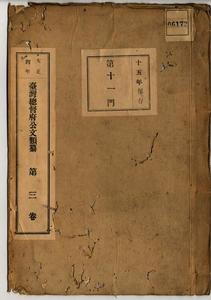 06172
十五年保存
第十一門
大正四年
臺灣總督府公文類纂 第三卷